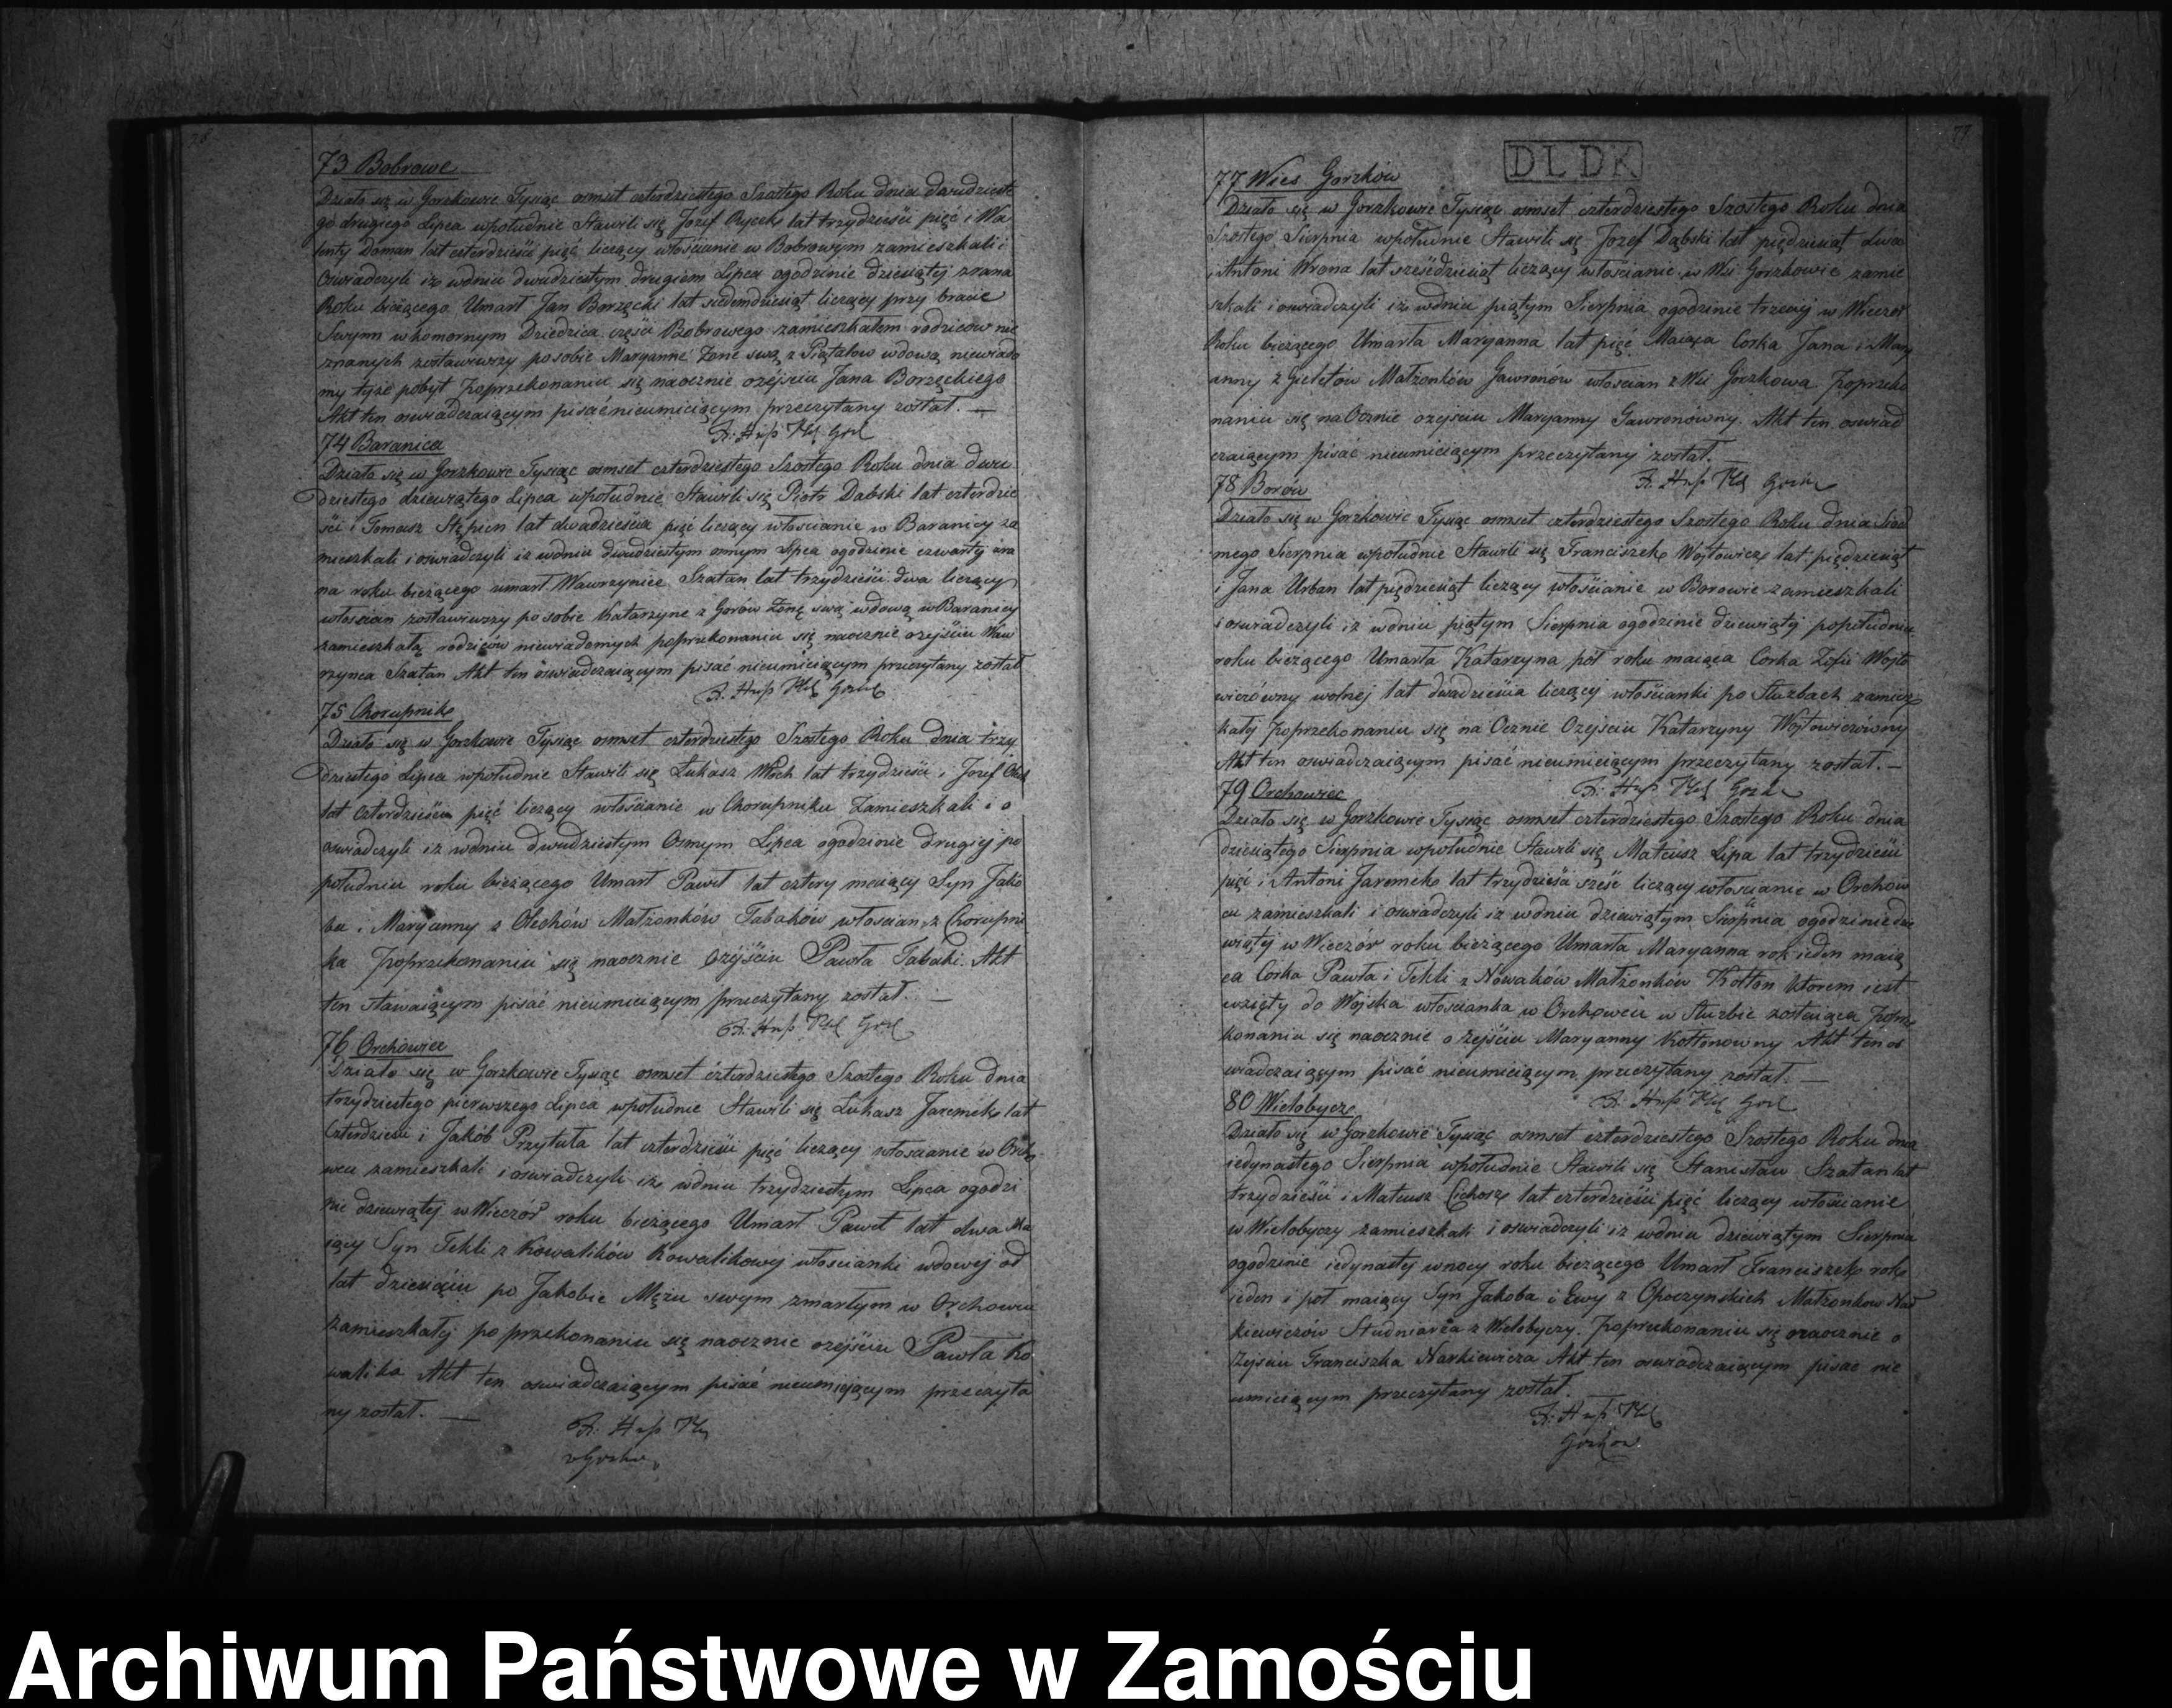 76
73 Bobrowe
Działo się w Gorzkowie Tysiąc osmset czterdziestego Szostego Roku dnia dwudzieste
go drugiego Lipca wpołudnie Stawili się Jozef Rycek lat trzydzieści pięć i Wa
lenty Doman lat czterdzieści pięć liczący włościanie w Bobrowym zamieszkali i
Oswiadczyli iż wdniu dwudziestym drugiem Lipca ogodzinie dziesiątej zrana
Roku bieżącego Umarł Jan Borzęcki lat siedmdziesiąt liczący przy bracie
Swym wkomornym Dziedzica części Bobrowego zamieszkałem rodzicow nie
znanych zostawiwszy posobie Maryannę Zonę swą z Piątałow wdową niewiado
my tyże pobyt Poprzekonaniu się naocznie ozejściu Jana Borzęckiego
Akt ten oswiadczaiącym pisać nieumieiącym przeczytany został. —
74 Baranica
Działo się w Gorzkowie Tysiąc osmset czterdziestego Szostego Roku dnia dwu
dziestego dziewiątego Lipca wpołudnie Stawili się Piotr Dabski lat czterdzie
ści i Tomasz Stępien lat dwadzieścia pięć liczący włościanie w Baranicy za
mieszkali i oświadczyli iż wdniu dwudziestym osmym Lipca ogodzinie czwarty zra
na roku bieżącego umarł Wawrzyniec Szatan lat trzydzieści dwa liczący
włościan zostawiwszy po sobie Katarzynę z Gorów Zonę swą wdową w Baranicy
zamieszkałą rodziców niewiadomych poprzekonaniu się naocznie ozejściu Waw
rzynca Szatan Akt ten oswiadczaiącym pisać nieumieiącym przeczytany został
75 Chorupnik
Działo się w Gorzkowie Tysiąc osmset czterdziestego Szostego Roku dnia trzy
dziestego Lipca wpołudnie Stawili się Łukasz Włoch lat trzydzieści i Jozef
lat czterdzieści pięć liczący włościanie w Chorupniku Zamieszkali i o
oswiadczyli iż wdniu dwudziestym Osmym Lipca ogodzinie drugiej po
południu roku bieżącego Umarł Paweł lat cztery maiący Syn Jakó
ba i Maryanny z Olechów Małżonków Tabaków włościan z Chorupni
ka Poprzekonaniu się naocznie ozéjściu Pawła Tabaki. Akt
ten stawaiącym pisać nieumieiącym przeczytany został. —
76 Orchowiec
Działo się w Gorzkowie Tysiąc osmset czterdziestego Szostego Roku dnia
trzydziestego pierwszego Lipca wpołudnie Stawili się Łukasz Jaremek lat
czterdzieści i Jakób Przytuła lat czterdzieści pięć liczący włościanie w Orcho
wcu zamieszkali i oswiadczyli iż wdniu trzydziestym Lipca ogodzi
nie dziewiątej w Wieczór roku bieżącego Umarł Paweł lat dwa Ma
iący Syn Tekli z Kowalików Kowalikowej włościanki wdowej od
lat dziesięciu po Jakobie Mężu swym zmarłym w Orchowcu
zamieszkałej po przekonaniu się naocznie ozejściu Pawła Ko
walika Akt ten oswiadczaiącym pisać nieumieiącym przeczyta
ny został. —
77
DLDK
77 Wies Gorzkow
Działo się w Gorzkowie Tysiąc osmset czterdziestego Szostego Roku dnia
Szostego Sierpnia wpołudnie Stawili się Jozef Dąbski lat pięćdziesiąt dwa
i Antoni Wrona lat sześćdziesiąt liczący włościanie w Wsi Gorzkowie zamie
szkali i oswiadczyli iż wdniu piątym Sierpnia ogodzinie trzeciej w Wieczór
Roku bieżącego Umarła Maryanna lat pięć Maiąca Corka Jana i Mary
anny z Gieletów Małżonków Gawronów włościan z Wsi Gorzkowa Poprzeko
naniu się na Ocznie ozejściu Maryanny Gawronówny. Akt ten oswiad
czaiącym pisać nieumieiącym przeczytany został.
78 Borów
Działo się w Gorzkowie Tysiąc osmset czterdziestego Szostego Roku dnia Siód
mego Sierpnia wpołudnie Stawili się Franciszek Wojtowicz lat pięćdziesiąt
i Jana Urban lat pięćdziesiąt liczący włościanie w Borowie zamieszkali
i oswiadczyli iż wdniu piątym Sierpnia ogodzinie dziewiątej popołudniu
roku bieżącego Umarła Katarzyna pół roku maiąca Corka Zofii Wojto
wiczówny wolnej lat dwadzieścia liczącej włościanki po Służbach zamiesz
kałej Poprzekonaniu się na Ocznie Ozejściu Katarzyny Wojtowiczówny
Akt ten oswiadczaiącym pisać nieumieiącym przeczytany został. —
79 Orchowiec
Działo się w Gorzkowie Tysiąc osmset czterdziestego Szostego Roku dnia
dziesiątego Sierpnia wpołudnie Stawili się Mateusz Lipa lat trzydzieści
pięć i Antoni Jaremek lat trzydzieści sześć liczący włościanie w Orchow
cu zamieszkali i oswiadczyli iż wdniu dziewiątym Sierpnia ogodzinie dzie
wiątej w Wieczór roku bieżącego Umarła Maryanna rok ieden maią
ca Corka Pawła i Tekli z Nowaków Małżonków Kołton ktorem iest
wzięty do Wojska włościanka w Orchowcu w Służbie zostaiąca Poprze
konaniu się naocznie o zejściu Maryanny Kołtonowny Akt ten os
wiadczaiącym pisać nieumieiącym przeczytany został. —
80 Wielobycz
Działo się w Gorzkowie Tysiąc osmset czterdziestego Szostego Roku dnia
iedynastego Sierpnia wpołudnie Stawili się Stanisław Szatan lat
trzydzieści i Mateusz Cichosz lat czterdzieści pięć liczący włościanie
w Wielobyczy zamieszkali i oswiadczyli iż wdniu dziewiątym Sierpnia
ogodzinie iedynastej wnocy roku bieżącego Umarł Franciszek rok
ieden i poł maiący Syn Jakoba i Ewy z Opoczynskich Małżonkow Nar
kiewiczów Studniarza z Wielobyczy. Poprzekonaniu się naocznie o
Zejsciu Franciszka Narkiewicza Akt ten oswiadczaiącym pisac nie
umieiącym przeczytany został.
Archiwum Państwowe w Zamościu